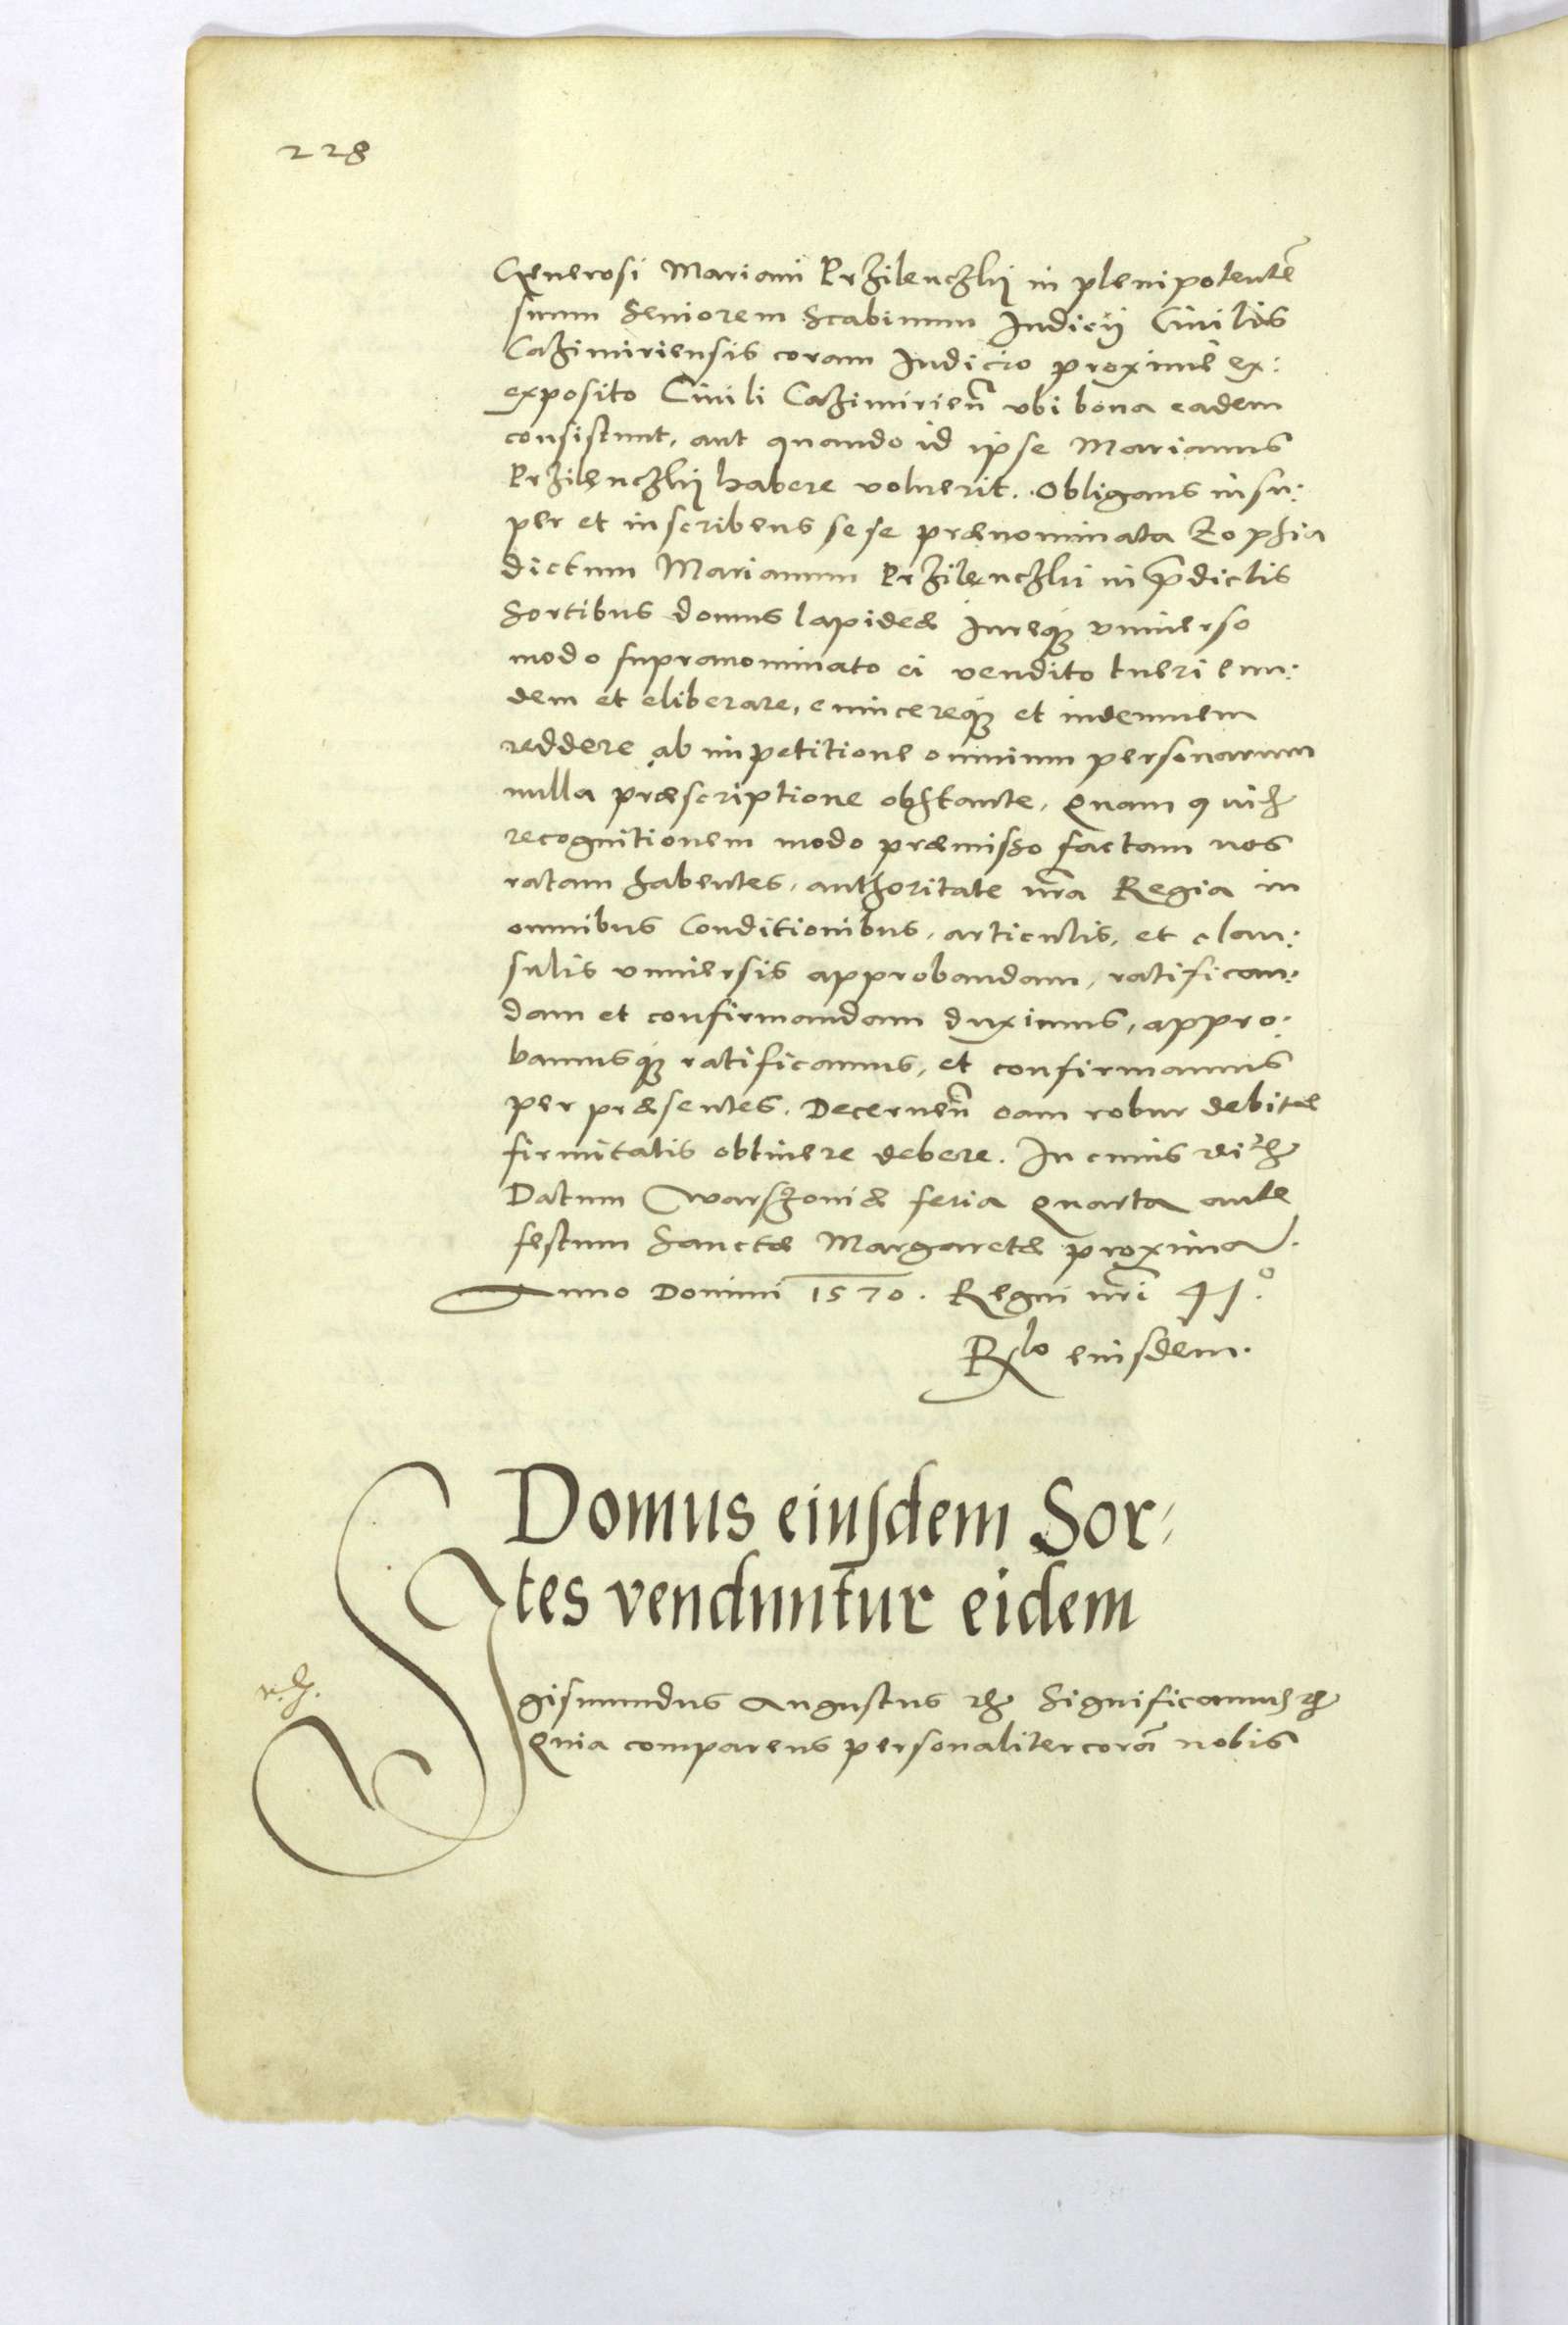 228
Generosi Mariani Przilenczkij in plenipotentẽ
suum Seniorem Scabinum Iudicij Ciuilis
Cazimiriensis coram Iudicio proxime ex:
exposito Ciuili Cazimirien̄ vbi bona eadem
consistunt, aut quando id ipse Marianus
Przilenczkij habere voluerit. Obligans insu:
per et inscribens sese prænominata Zophia
dictum Marianum Przilenczki in p̄dictis
Sortibus domus lapideæ Iureq3 vniuerso
modo supranominato ei vendito tueri eun:
dem et eliberare, euincereq3 et indemnem
reddere ab impetitione omnium personarum
nulla præscriptione obstante, Quam
recognitionem modo præmisso factam nos
ratam habentes, authoritate nr̄a Regia in
omnibus Conditionibus, articulis, et clau:
sulis vniuersis approbandam, ratifican:
dam et confirmandam duximus, appro:
bamusq3 ratificamus, et confirmamus
per præsentes. Decernen̄ eam robur debitæ
firmitatis obtinere debere. In cuius rei &c
Datum Warszouiæ feria Quarta ante
festum Sanctæ Margaretæ proxima.
Anno Domini 1570. Regni nr̄i 41.º
Rlo eiusdem.
Domus eiusdem Sor-
tes venduntur eidem
Sigismundus Augustus &c Significamus &c
Quia comparens personaliter corā nobis